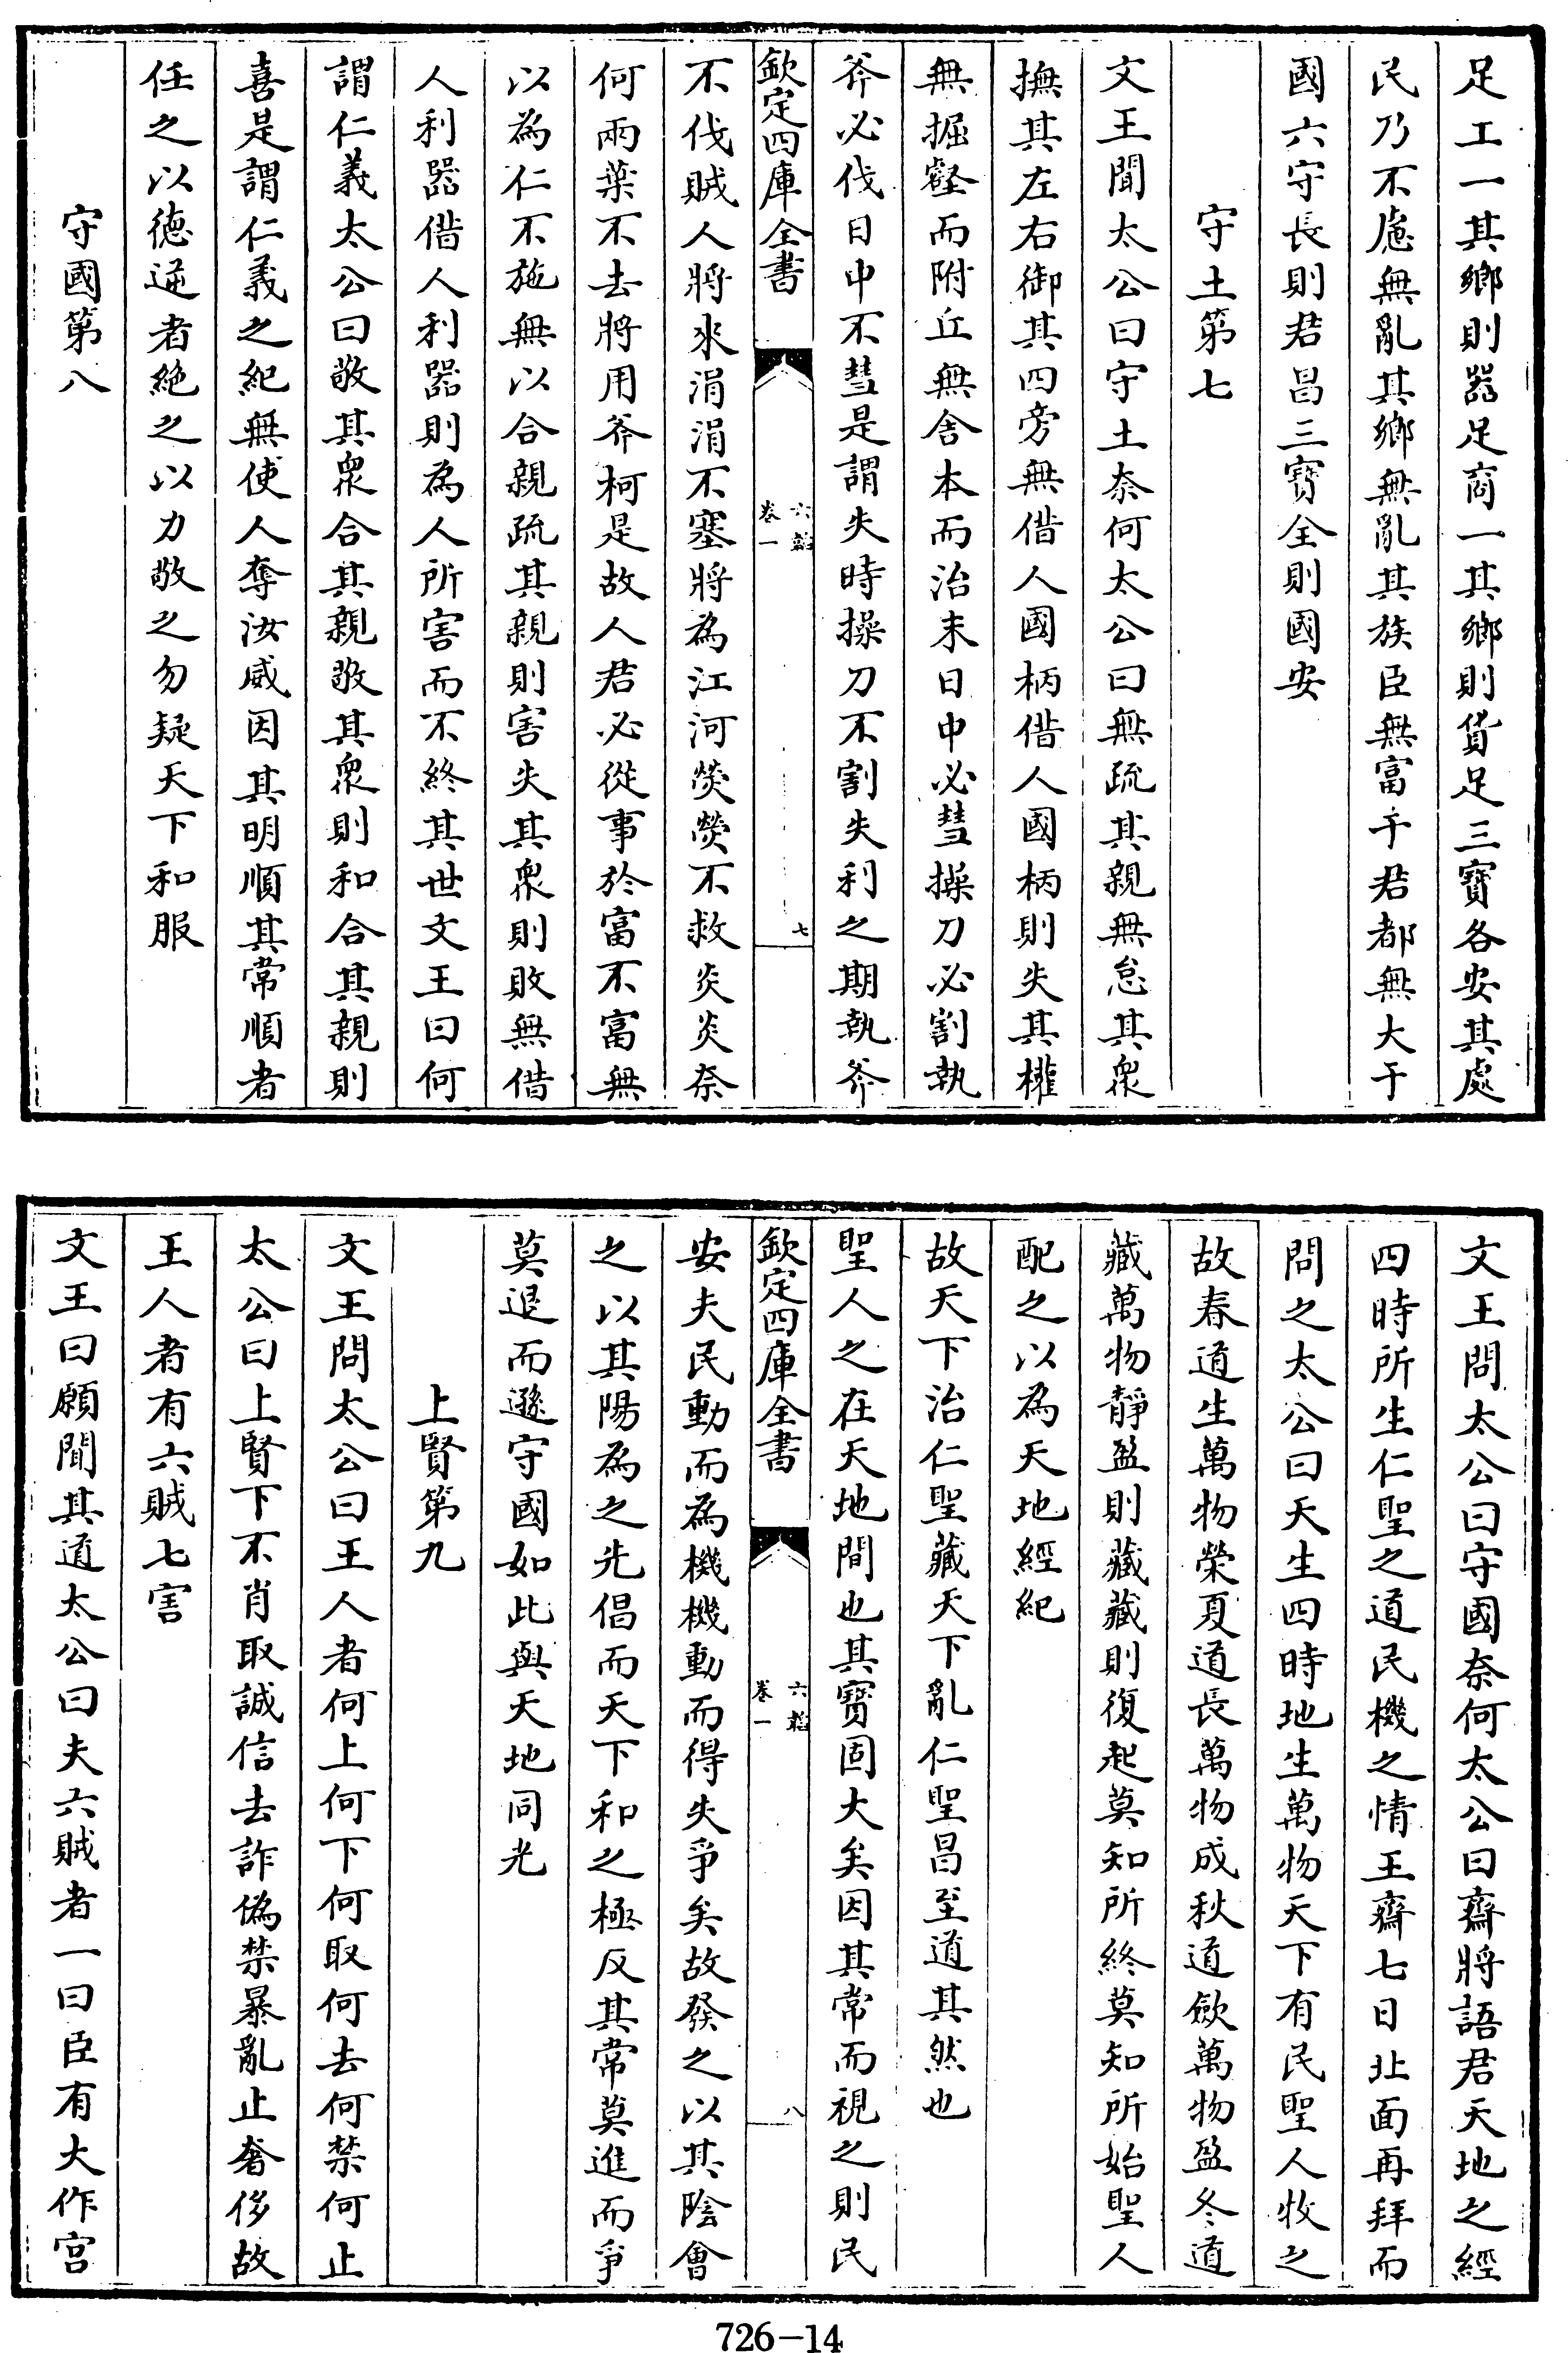 足工一其鄉則器足商一其鄉則貨足三寶各安其處
民乃不慮無亂其鄉無亂其族臣無富于君都無大于
國六守長則君昌三寶全則國安
守土第七
文王聞太公曰守土奈何太公曰無疏其親無怠其眾
撫其左右御其四旁無借人國柄借人國柄則失其權
無掘壑而附丘無舍本而治末日中必彗操刀必割執
斧必伐日中不彗是謂失時操刀不割失利之期執斧
欽定四庫全書
六韜
卷一
七
不伐賊人將來涓涓不塞將為江河熒熒不救炎炎奈
何兩葉不去將用斧柯是故人君必從事於富不富無
以為仁不施無以合親疏其親則害失其眾則敗無借
人利器借人利器則為人所害而不終其世文王曰何
謂仁義太公曰敬其眾合其親敬其眾則和合其親則
喜是謂仁義之紀無使人奪汝威因其明順其常順者
任之以德逆者絶之以力敬之勿疑天下和服
守國第八
文王問太公曰守國奈何太公曰齋將語君天地之經
四時所生仁聖之道民機之情王齋七日北面再拜而
問之太公曰天生四時地生萬物天下有民聖人牧之
故春道生萬物榮夏道長萬物成秋道歛萬物盈冬道
藏萬物靜盈則藏藏則復起莫知所終莫知所始聖人
配之以為天地經紀
故天下治仁聖藏天下亂仁聖昌至道其然也
聖人之在天地間也其寶固大矣因其常而視之則民
欽定四庫全書
六韜
卷一
八
安夫民動而為機機動而得失爭矣故發之以其陰會
之以其陽為之先倡而天下和之極反其常莫進而爭
莫退而遜守國如此與天地同光
上賢第九
文王問太公曰王人者何上何下何取何去何禁何止
太公曰上賢下不肖取誠信去詐偽禁暴亂止奢侈故
王人者有六賊七害
文王曰願聞其道太公曰夫六賊者一曰臣有大作宮
726-14